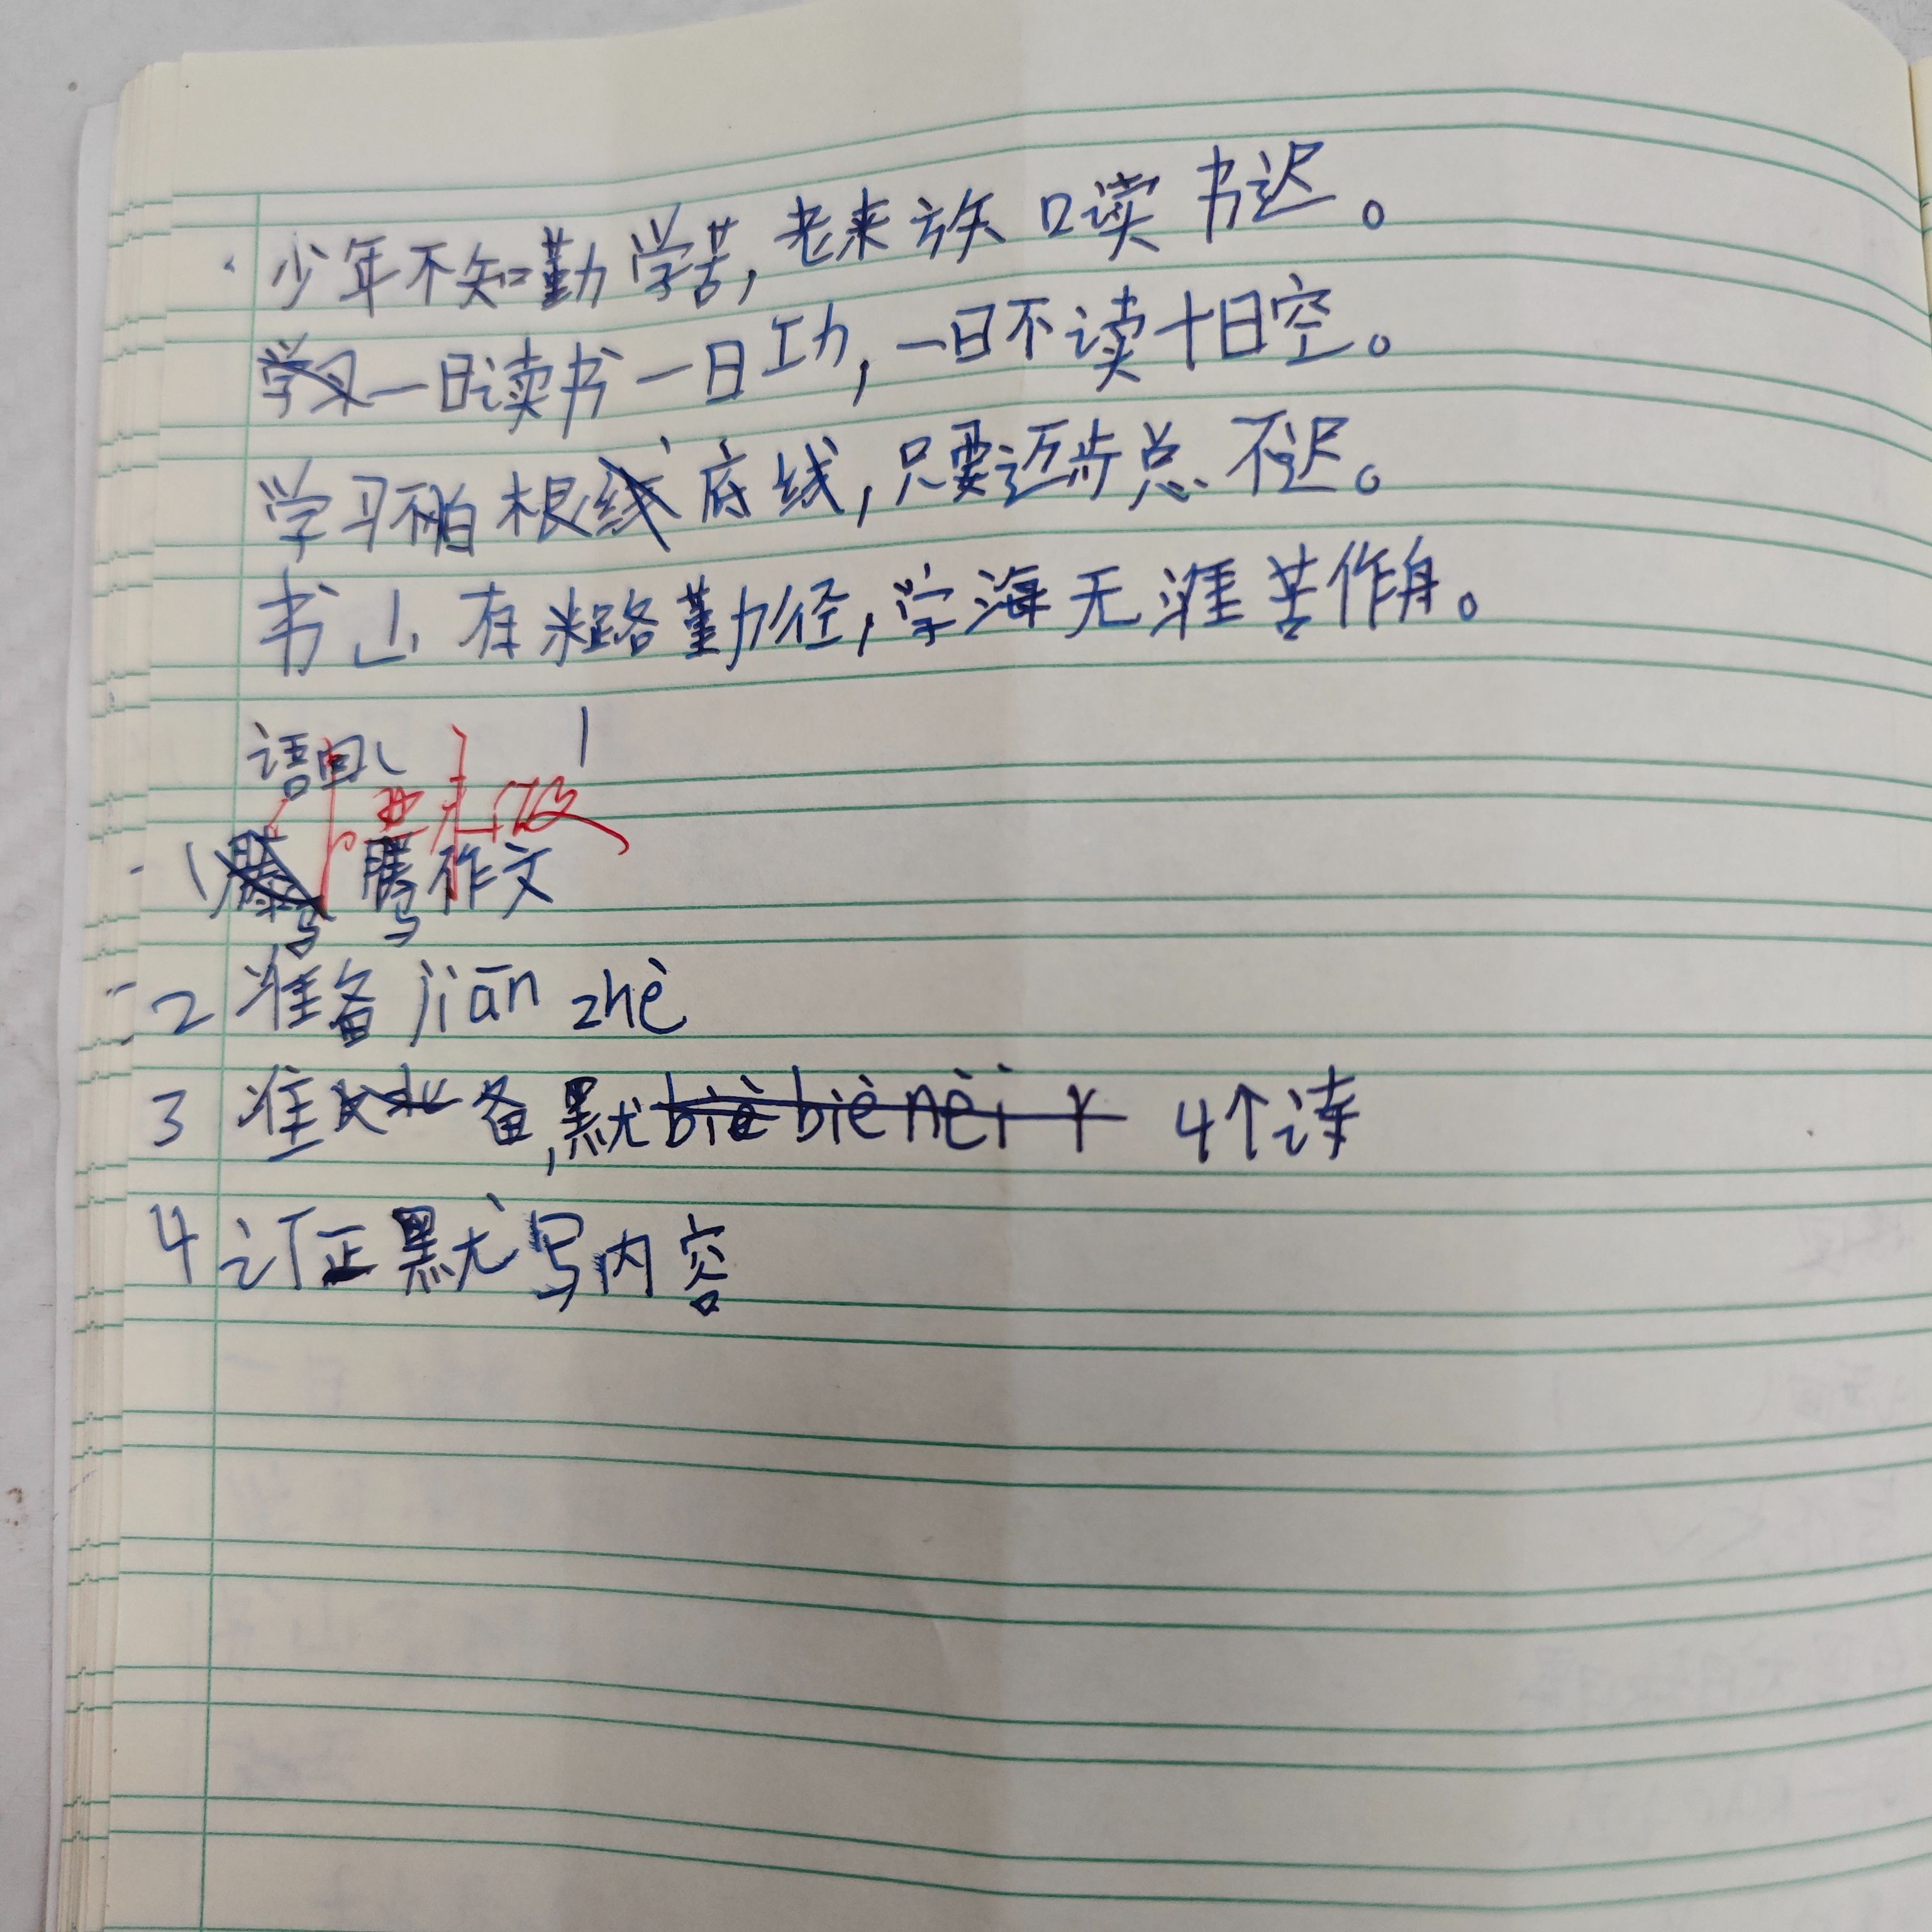 少年不知勤学苦,老来方矢口读书迟。
一日读书一日功,一日不读十日空。
学习不怕根底线,只要迈步总不迟。
书山有路勤径,学海无涯苦作舟。
语
1 誊作文
2 准备 jiān zhè
3 准备,默 4个诗
4 订正默写内容